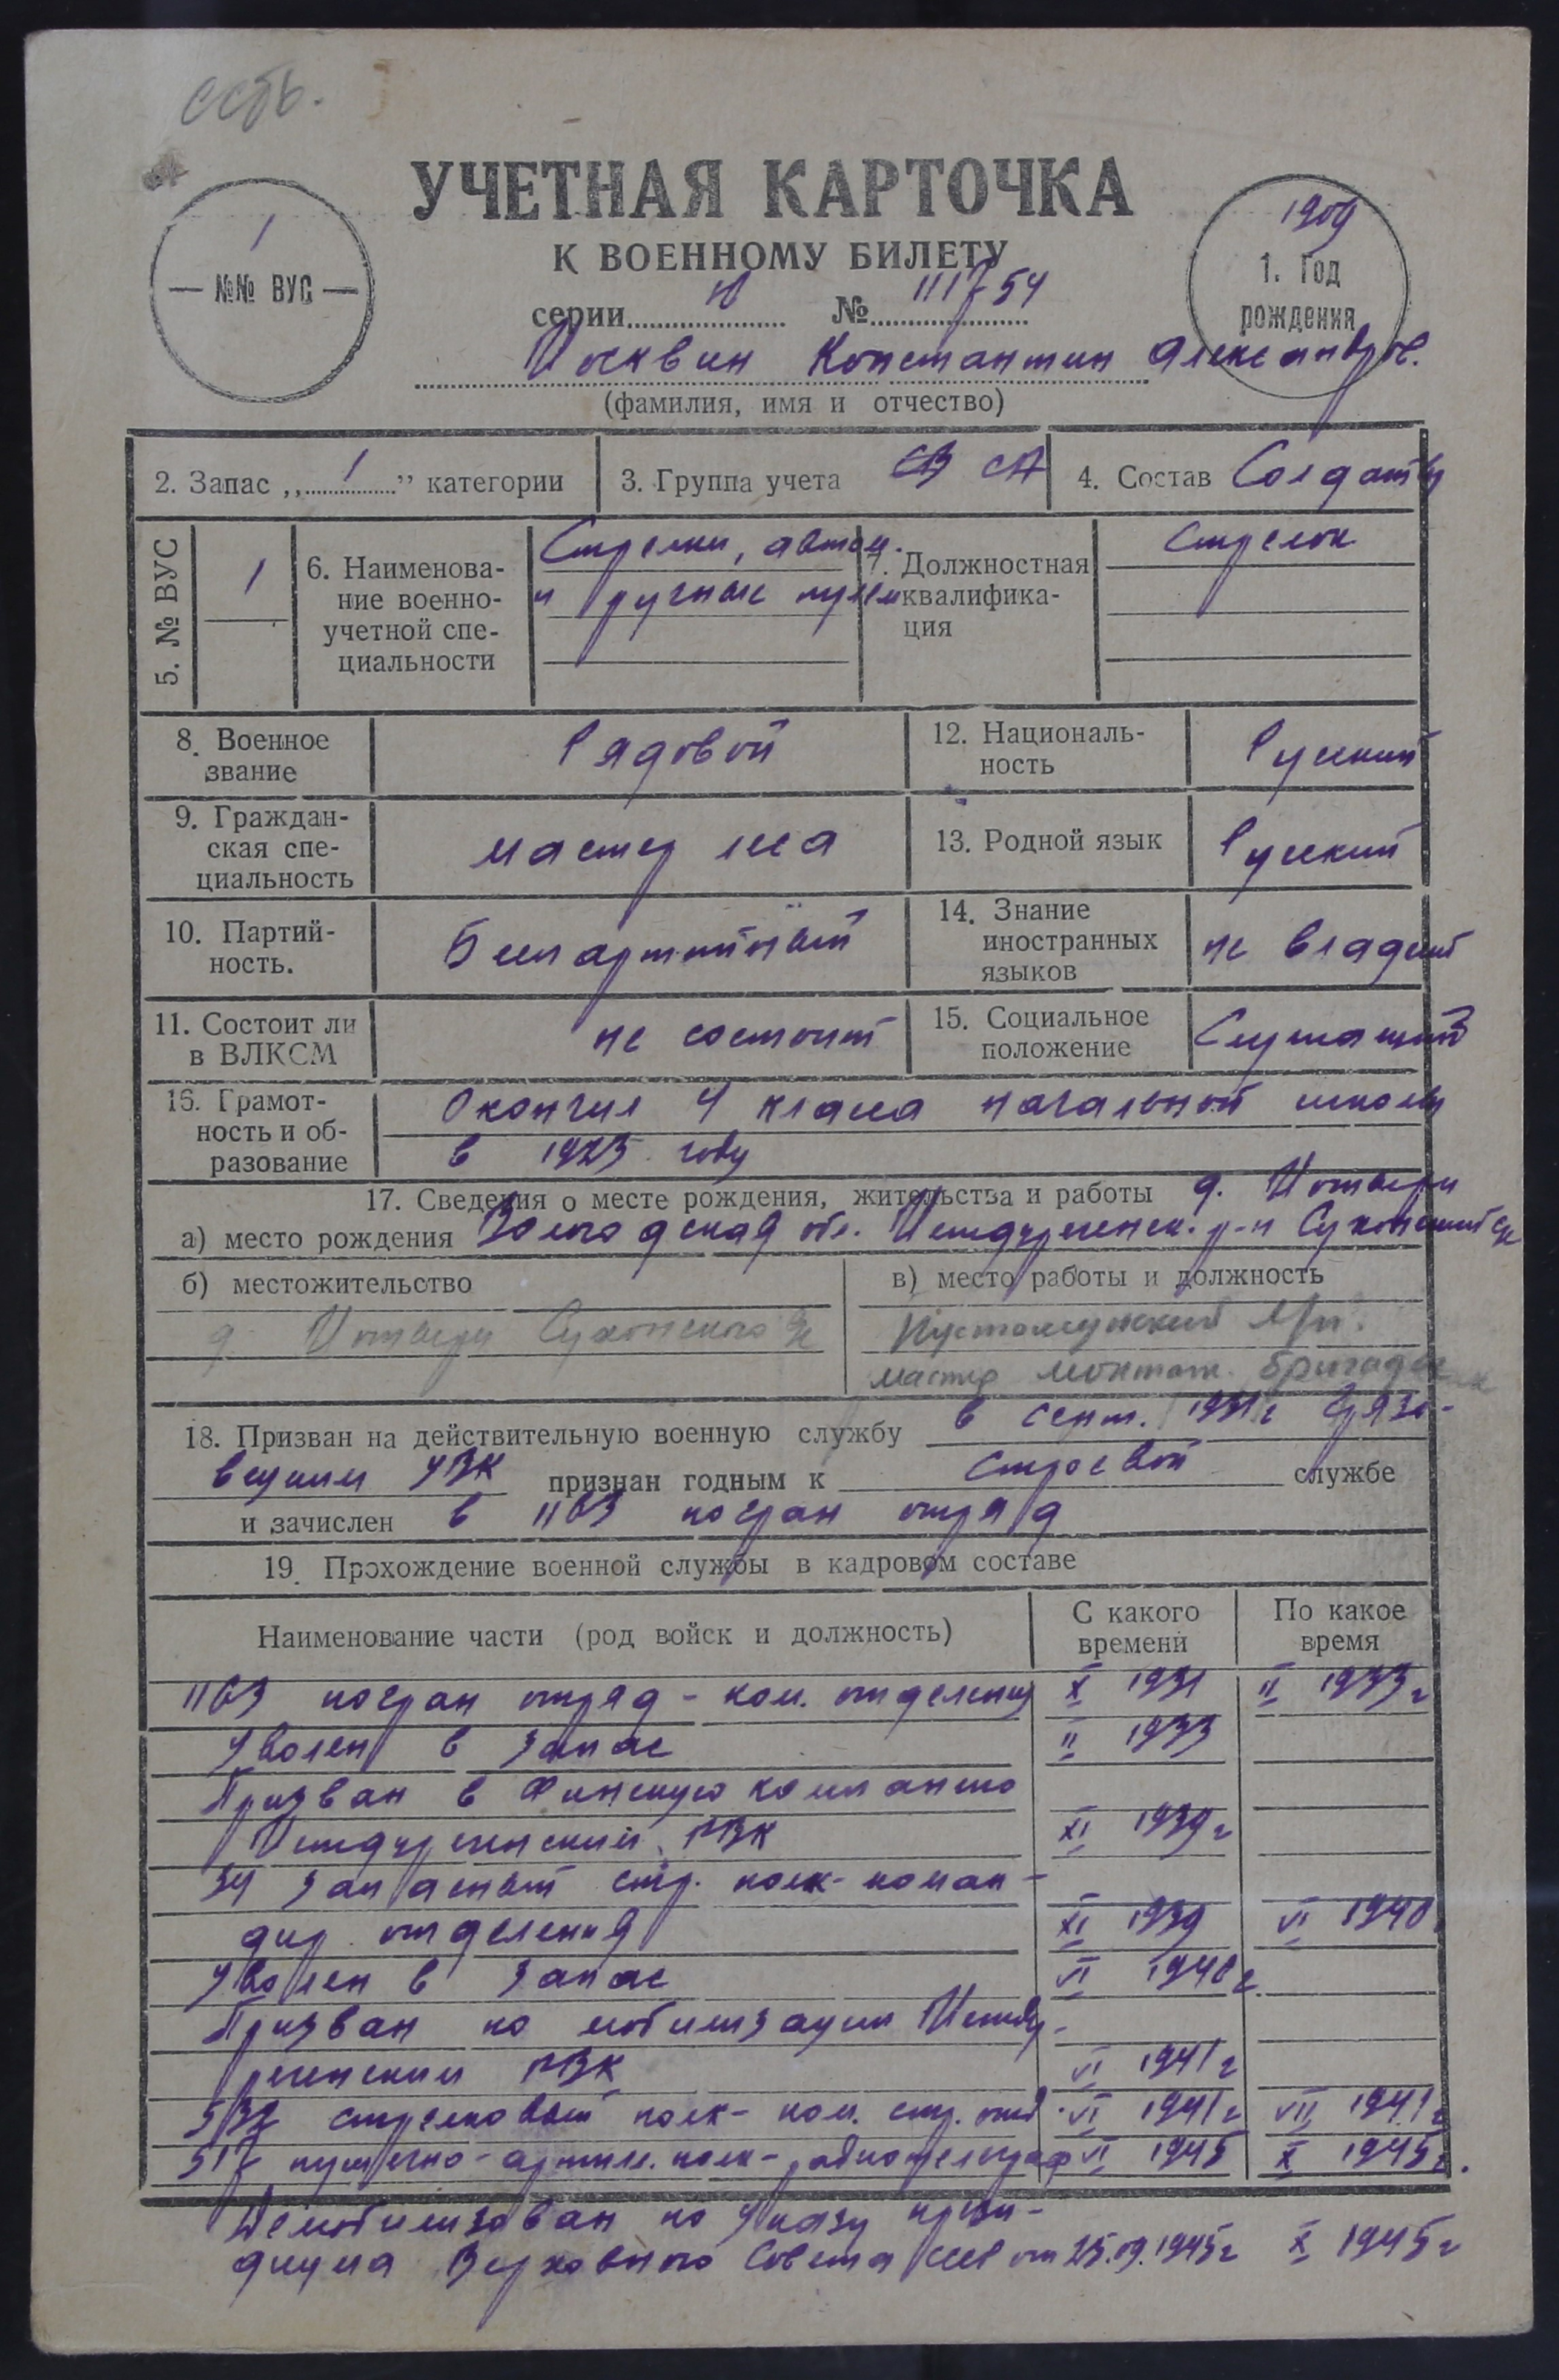 есть.
УЧЕТНАЯ КАРТОЧКА
К ВОЕННОМУ БИЛЕТУ
1
№№ ВУС
1909
1. Год
рождения
серии Ю № 111754
Москвин Константин Александров.
(фамилия, имя и отчество)
2. Запас „1” категории
3. Группа учета СВ СА
4. Состав Солдаты
5. № ВУС
1
6. Наименова-
ние военно-
учетной спе-
циальности
Стрелки, автом.
и ручные пулем
7. Должностная
квалифика-
ция
Стрелок
8. Военное
звание
Рядовой
12. Националь-
ность
Русский
9. Граждан-
ская спе-
циальность
мастер леса
13. Родной язык
Русский
10. Партий-
ность.
Беспартийный
14. Знание
иностранных
языков
не владеет
11. Состоит ли
в ВЛКСМ
не состоит
15. Социальное
положение
Служащий
15. Грамот-
ность и об-
разование
Окончил 4 класса начальной школы
в 1925 году
17. Сведения о месте рождения, жительства и работы д.
а) место рождения Вологодская обл. Междуреченск. р-н Сухонский с/с
б) местожительство
д. Сухонского с/с
в) место работы и должность
мастер монтаж. бригады
18. Призван на действительную военную службу в сент. 1931 г Грязо-
вецким УВК признан годным к строевой службе
и зачислен в погран отряд
19. Прохождение военной службы в кадровом составе
Наименование части (род войск и должность)
С какого
времени
По какое
время
погран отряд - ком. отделения X 1931 II 1933 г
Уволен в запас II 1933
Призван в Финскую компанию
Междуреченским РВК XI 1939 г
34 запасный стр. полк - коман-
дир отделения XI 1939 VI 1940
Уволен в запас VI 1940 г
Призван по мобилизации Между-
реченским РВК VI 1941 г
стрелковый полк - ком. стр. отд. VI 1941 г VII 1941 г
517 пушечно-артилл. полк - радиотелеграф VI 1945 X 1945 г.
Демобилизован по Указу прези-
диума Верховного Совета СССР от 25.09.1945 г X 1945 г